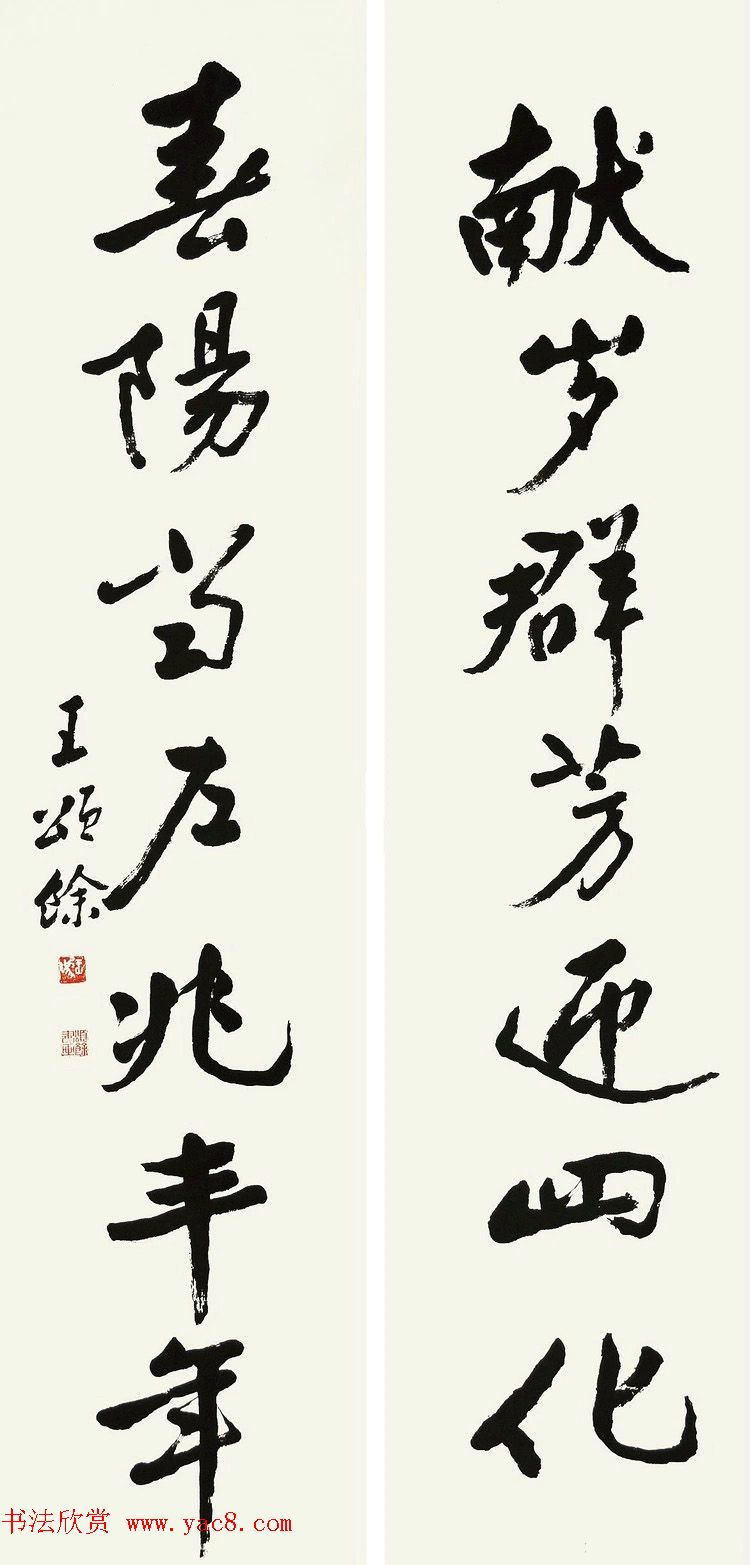 献岁群芳迎四化
春陽当左兆丰年
王頌餘
书法欣赏 www.yac8.com